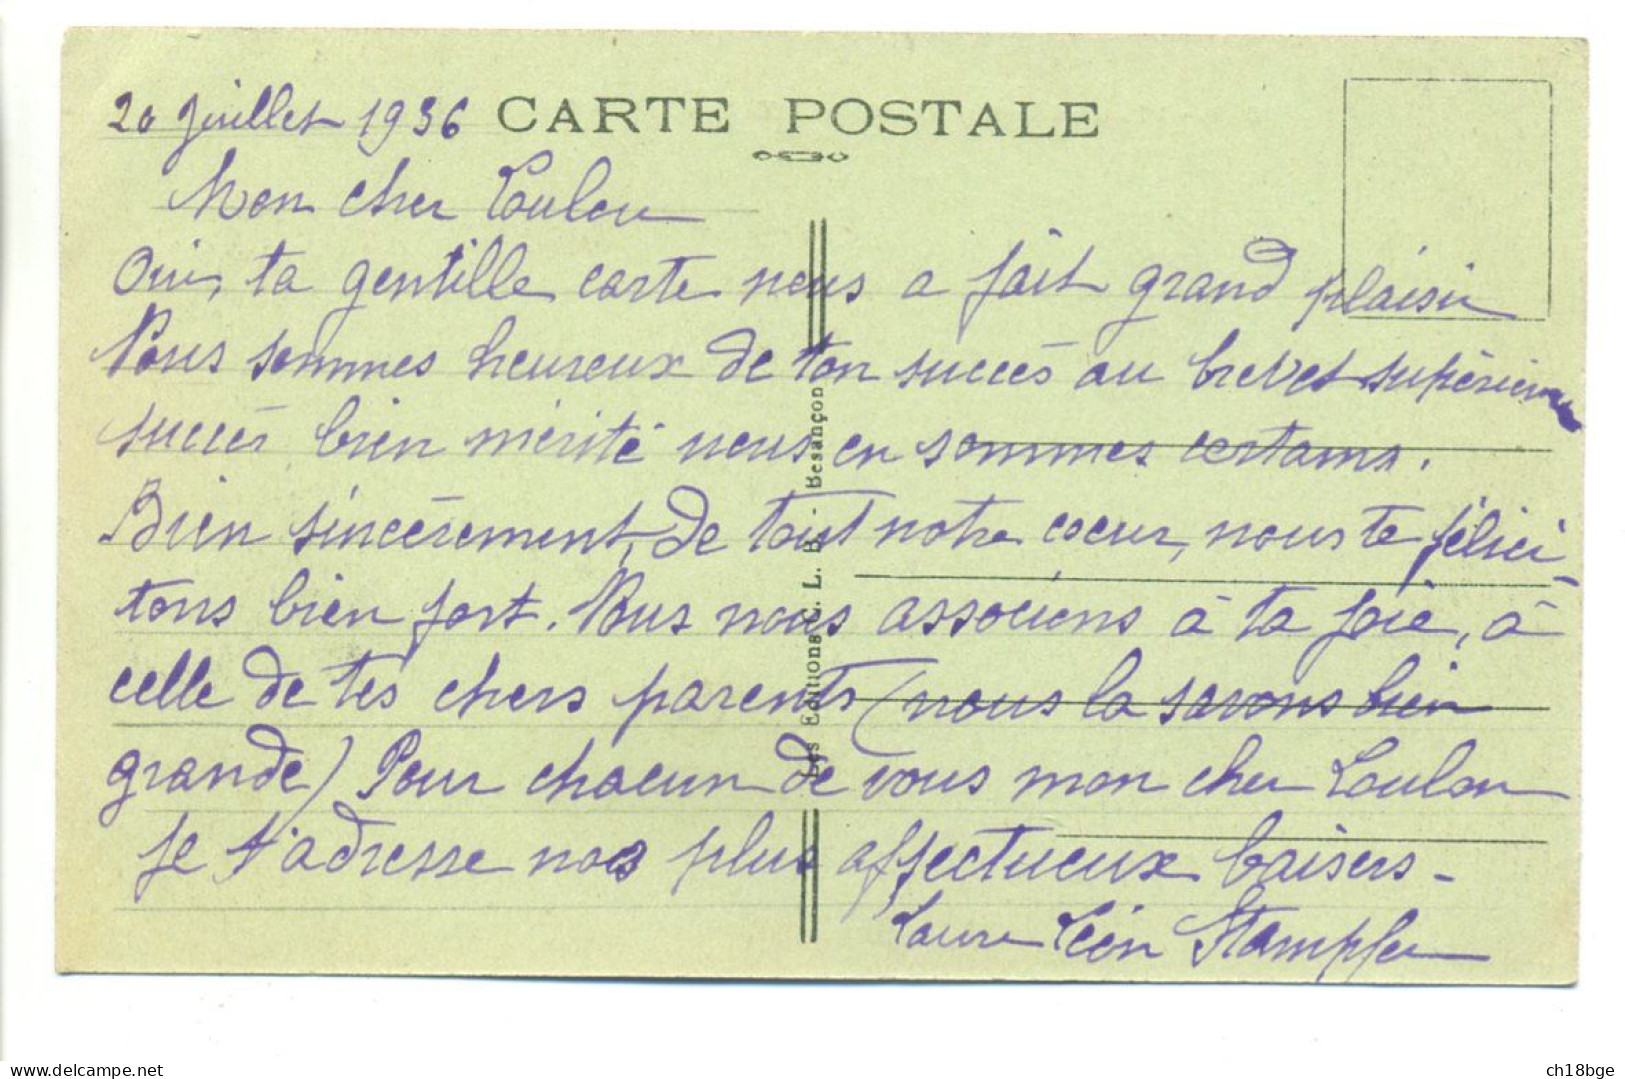 20 Juillet 1936
CARTE POSTALE
Mon cher Loulou
Oui, ta gentille carte nous a fait grand plaisir
Nous sommes heureux de ton succès au brevet supérieur
succès bien mérité nous en sommes certains.
Bien sincèrement, de tout notre coeur, nous te félici-
tons bien fort. Nous nous associons à ta joie, à
celle de tes chers parents (nous la savons bien
grande) Pour chacun de vous mon cher Loulou
je t'adresse nos plus affectueux baisers -
Laure Léon Stampfer
Les Editions C. L. B. Besançon
delcampe.net
ch18bge